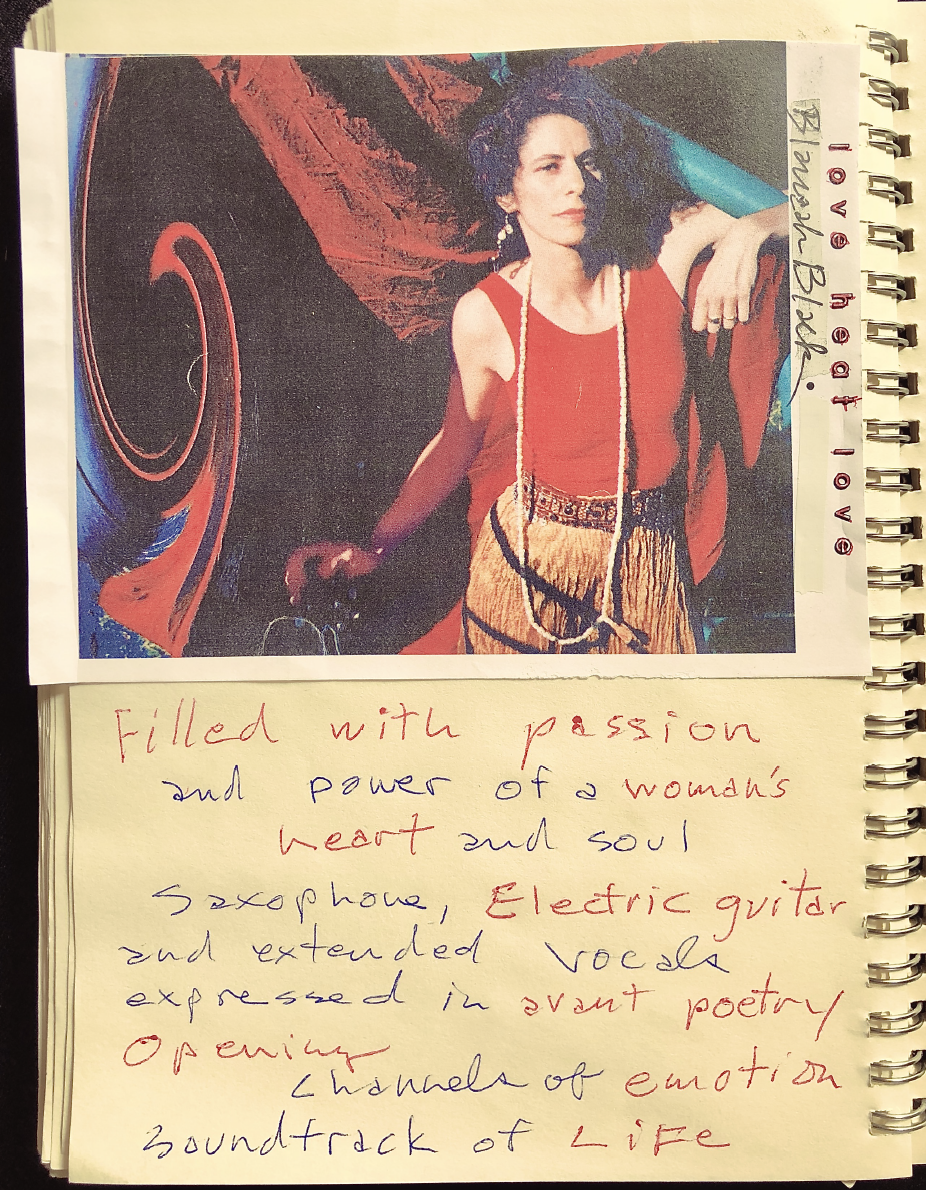 love heat love
Black.
Filled with passion
and power of a woman's
heart and soul
Saxophone, Electric guitar
and extended vocals
expressed in avant poetry
Opening
channels of emotion
Soundtrack of LiFe